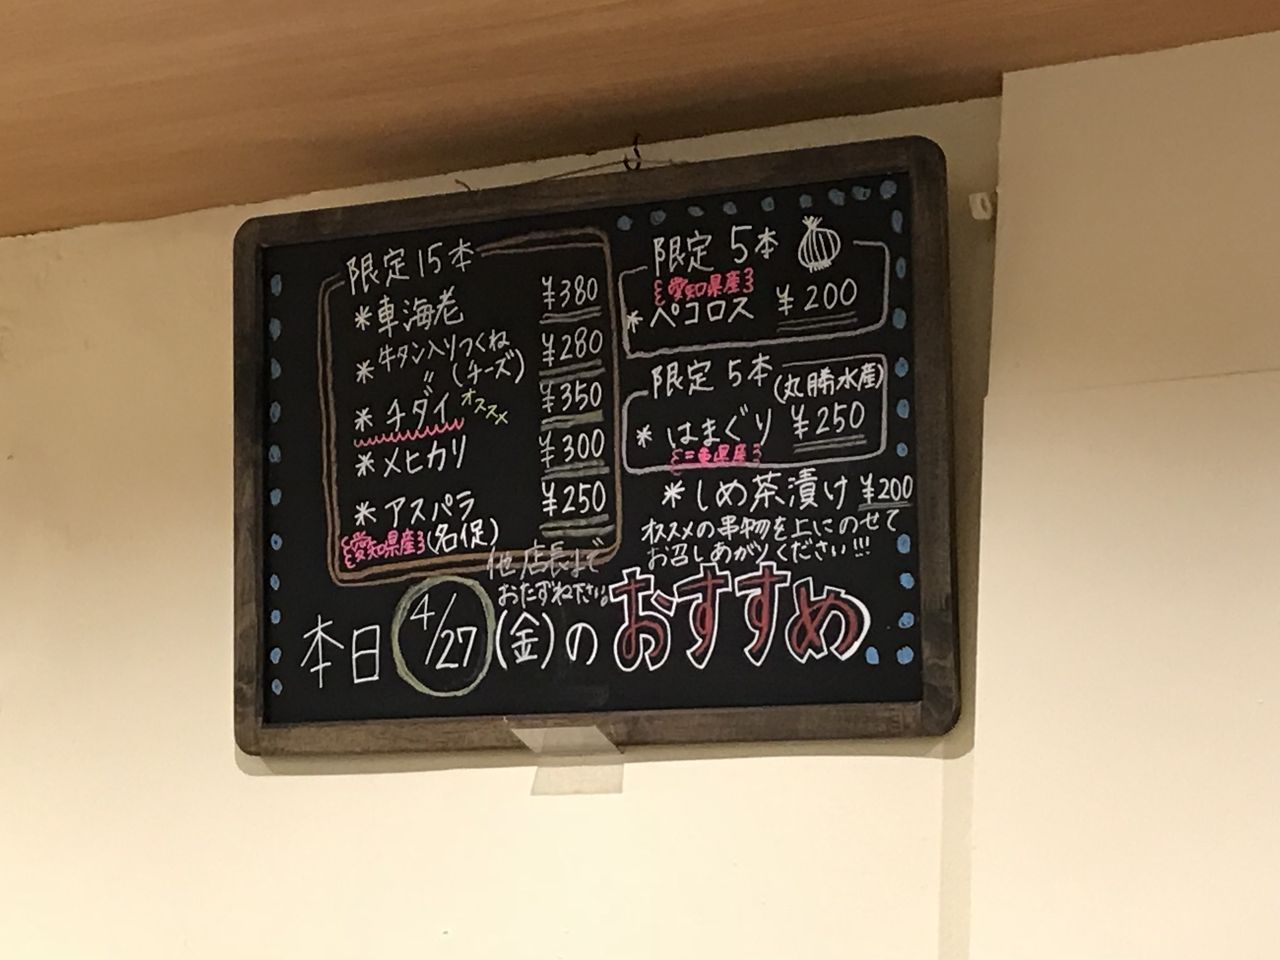 限定15本
*車海老 ¥380
*牛タン入りつくね ¥280
〃 (チーズ) ¥350
*チダイ オススメ ¥300
*メヒカリ ¥250
*アスパラ
愛知県産 (名促)
他店長まで
おたずね下さい。
限定5本
愛知県産
*ペコロス ¥200
限定5本 (丸勝水産)
*はまぐり ¥250
三重県産
*しめ茶漬け ¥200
オススメの串物を上にのせて
お召しあがりください!!!
本日 4/27 (金)の おすすめ